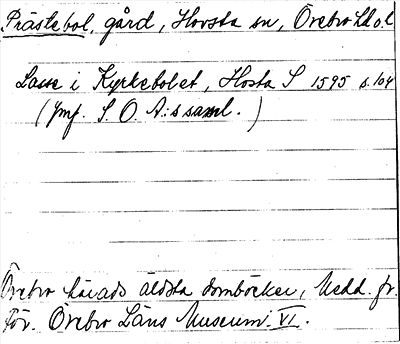 Prästebol, gård, Hovsta sn, Örebro hd o. l
Lasse i Kyrkebolet, Hosta S 1595 s. 104
(Jmf. S. O. A:s saml.)
Örebro härads äldsta domböcker, Medd. fr.
för. Örebro Läns Museum. VI.